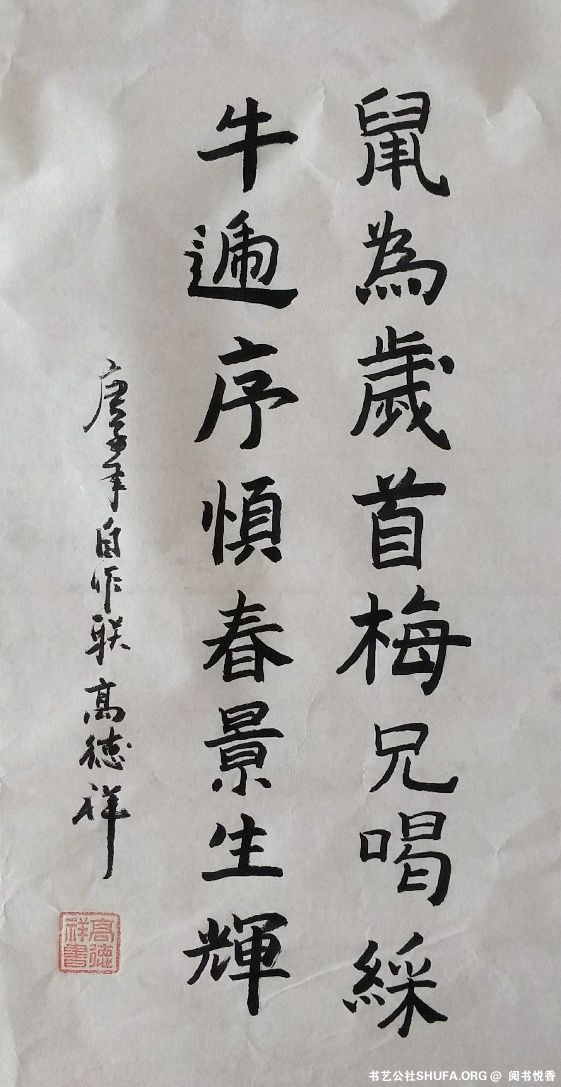 鼠為歲首梅兄喝綵
牛遞序慎春景生輝
庚子年自作联高德祥
高德祥書
书艺公社SHUFA.ORG @ 阅书悦香